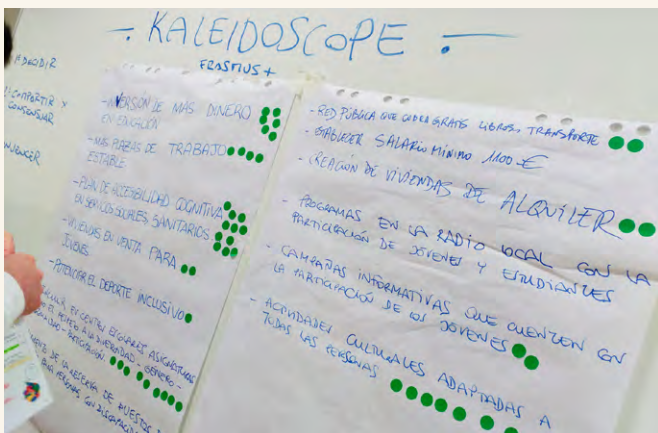 KALEIDOSCOPE
ERASMUS+
DECIDIR
COMPARTIR Y
CONSENSUAR
- INVERSIÓN DE MÁS DINERO
EN EDUCACIÓN
- MÁS PLAZAS DE TRABAJO
ESTABLE
- PLAN DE ACCESIBILIDAD COGNITIVA
EN SERVICIOS SOCIALES SANITARIOS
- VIVIENDAS EN VENTA PARA
JÓVENES
- POTENCIAR EL DEPORTE INCLUSIVO
EN CENTROS ESCOLARES ASIGNATURAS
EL RESPETO A LA DIVERSIDAD - GÉNERO -
DE LA RESERVA DE PUESTOS
PARA PERSONAS CON DISCAPACIDAD
- RED PÚBLICA QUE CUBRA GRATIS LIBROS, TRANSPORTE
- ESTABLECER SALARIO MÍNIMO 1100 €
- CREACIÓN DE VIVIENDAS DE ALQUILER
- PROGRAMAS EN LA RADIO LOCAL CON LA
PARTICIPACIÓN DE JÓVENES Y ESTUDIANTES
- CAMPAÑAS INFORMATIVAS QUE CUENTEN CON
LA PARTICIPACIÓN DE LOS JÓVENES
- ACTIVIDADES CULTURALES ADAPTADAS A
TODAS LAS PERSONAS